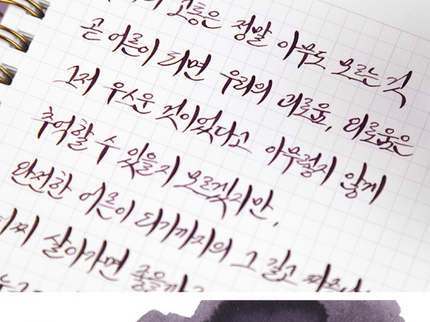 고통은 정말 아무도 모르는 것
곧 어른이 되면 우리의 괴로움, 외로움은
그저 우스운 것이었다고 아무렇지 않게
추억할 수 있을지 모르겠지만,
완전한 어른이 되기까지의 그 길고
살아가면 좋을까